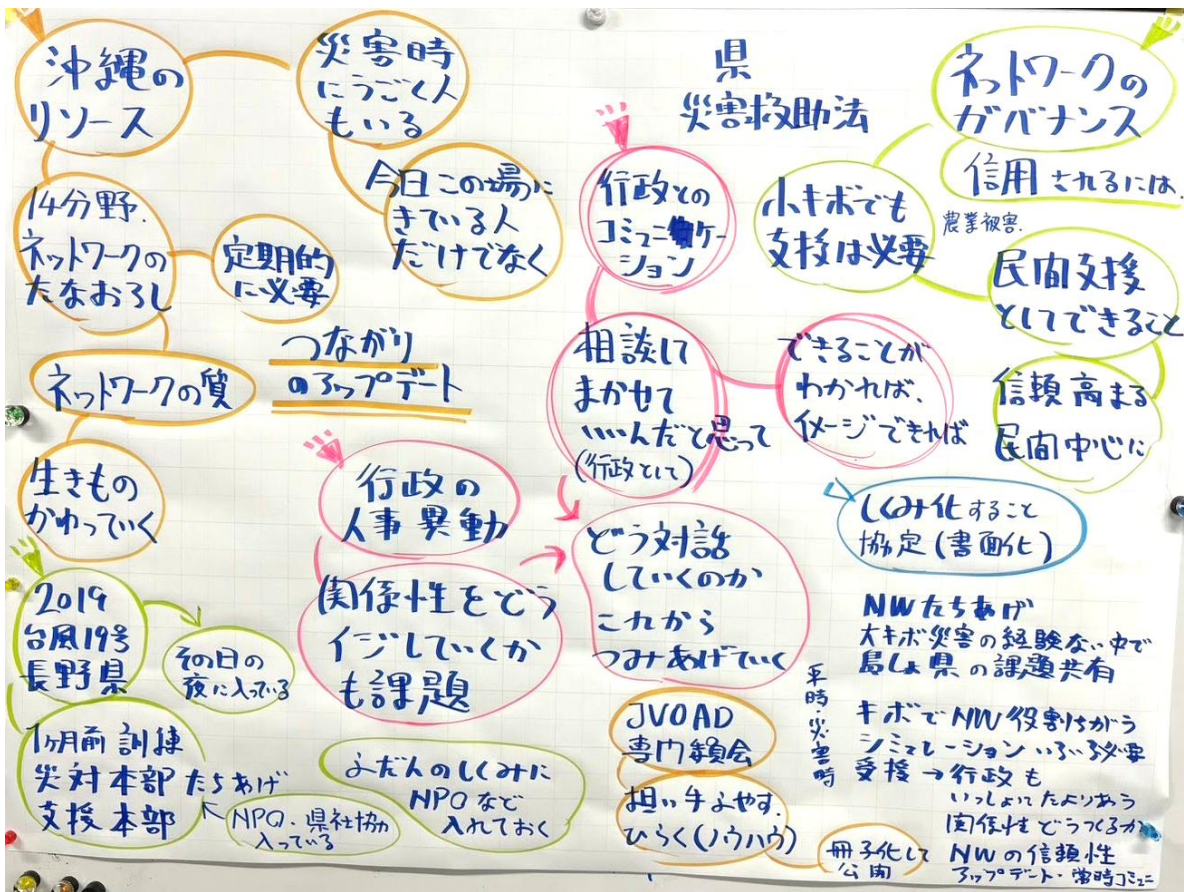 沖縄の
リソース
災害時
にうごく人
もいる
今日この場に
きている人
だけでなく
14分野.
ネットワークの
たなおろし
定期的
に必要
ネットワークの質
生きもの
かわっていく
つながり
のアップデート
2019
台風19号
長野県
その日の
夜に入っている
1ヶ月前 訓練
災対本部 たちあげ
支援本部
NPO・県社協が
入っている
ふだんのしくみに
NPOなど
入れておく
行政の
人事異動
関係性をどう
イジしていくか
も課題
県
災害救助法
行政との
コミュニケー
ション
相談して
まかせて
いいんだと思って
(行政として)
できることが
わかれば、
イメージできれば
どう対話
していくのか
これから
つみあげていく
JVOAD
専門委員会
担い手ふやす.
ひらく(ノウハウ)
冊子化して
公開
ネットワークの
ガバナンス
信用されるには.
小キボでも
支援は必要
農業被害.
民間支援
としてできること
信頼高まる
民間中心に
しくみ化すること
協定(書面化)
NWたちあげ
大キボ災害の経験ない中で
島しょ県の課題共有
平時・災害時
キボでNW役割ちがう
シミュレーションいろいろ必要
受援→行政も
いっしょにたよりあう
関係性どうつくるか
NWの信頼性
アップデート・常時コミュニ